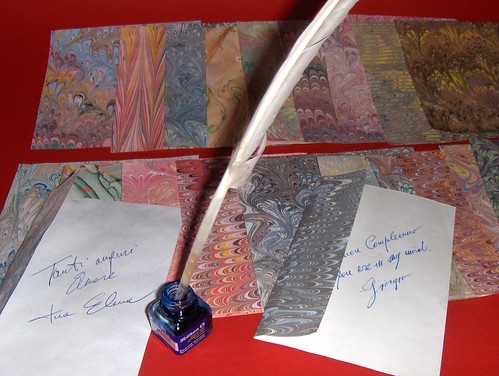 Tanti auguri
Amore
tua Elena
Buon Compleanno
you are in my mind.
Giorgio